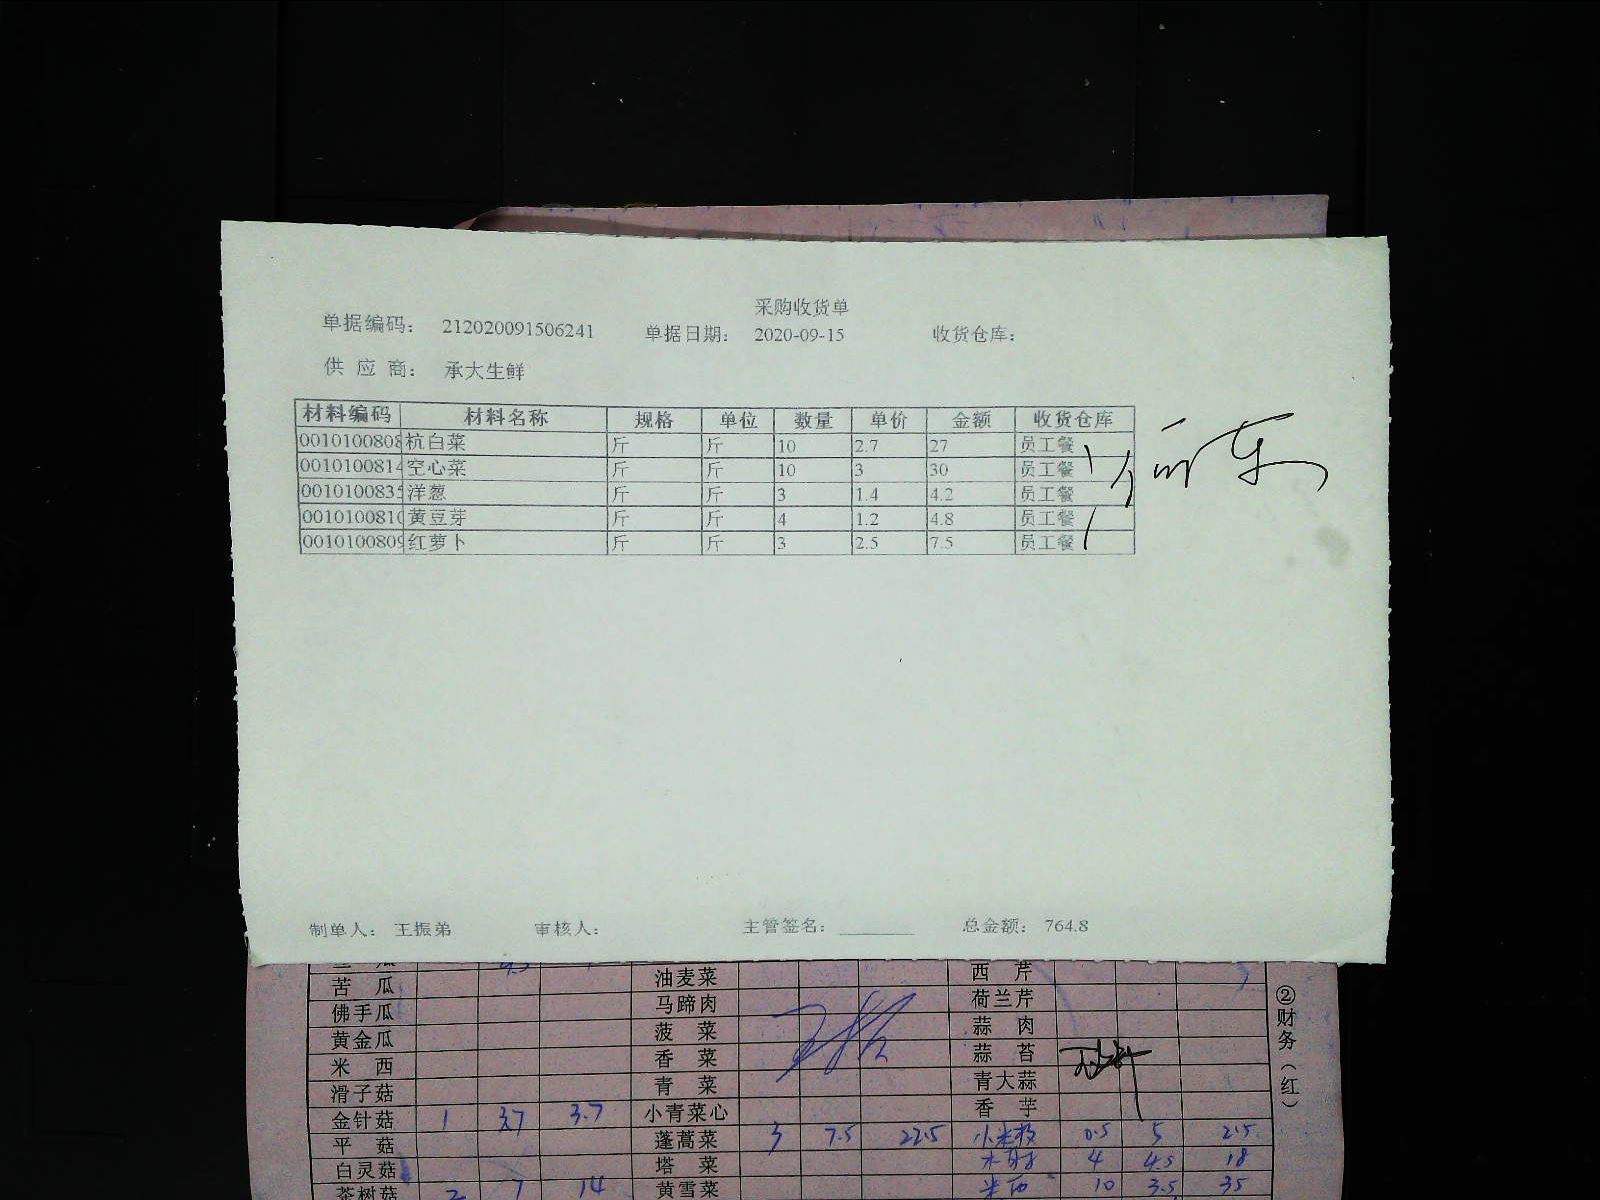 采购收货单
单据编码： 212020091506241 单据日期： 2020-09-15 收货仓库：
供 应 商： 承大生鲜
材料编码 材料名称 规格 单位 数量 单价 金额 收货仓库
0010100808 杭白菜 斤 斤 10 2.7 27 员工餐
0010100814 空心菜 斤 斤 10 3 30 员工餐
001010083 洋葱 斤 斤 3 1.4 4.2 员工餐
001010081 黄豆芽 斤 斤 4 1.2 4.8 员工餐
0010100809 红萝卜 斤 斤 3 2.5 7.5 员工餐
制单人： 王振弟 审核人： 主管签名： 总金额： 764.8
油麦菜 西 芹
苦 瓜 马蹄肉 荷兰芹
佛手瓜 菠 菜 蒜 肉
黄金瓜 香 菜 蒜 苔
米 西 青 菜 青大蒜
滑子菇 小青菜心 香 芋
金针菇 1 3.7 3.7 蓬蒿菜 3 7.5 22.5 小米椒 0.5 5 2.5
平 菇 塔 菜 4 4.5 18
白灵菇 黄雪菜 10 3.5 35
茶树菇 2 7 14
②财务（红）